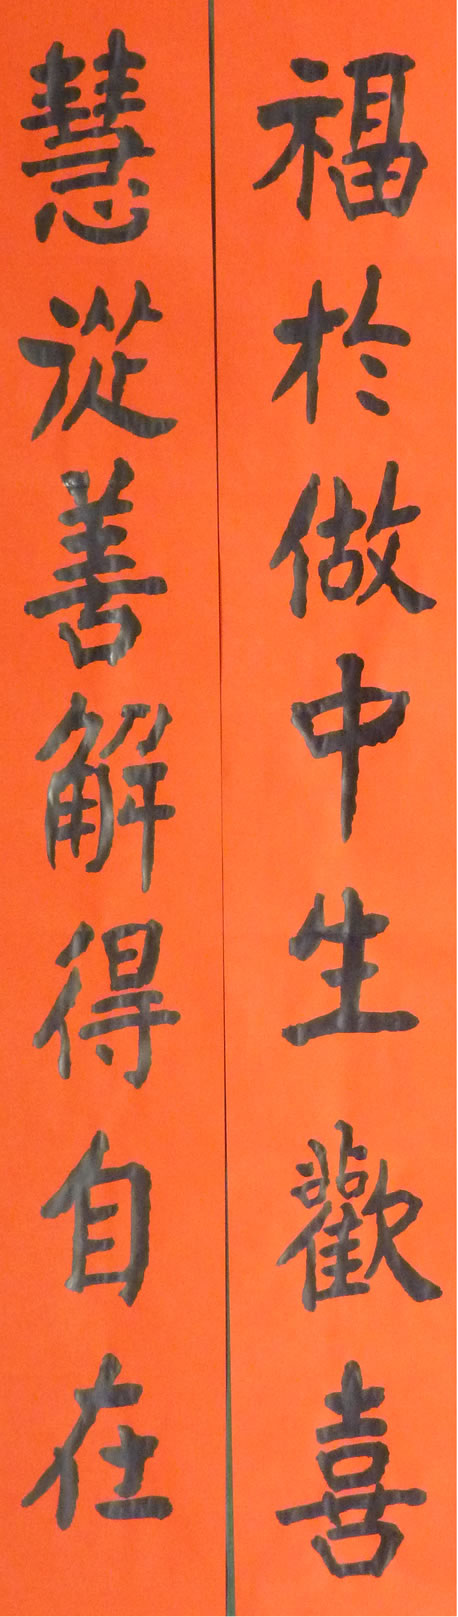 福於做中生歡喜
慧從善解得自在